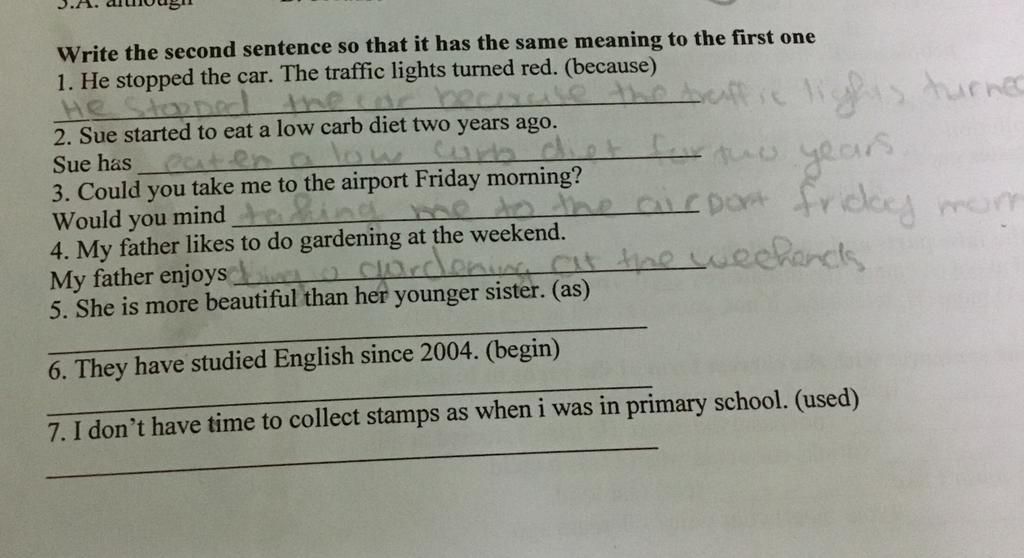 3.A. although
Write the second sentence so that it has the same meaning to the first one
1. He stopped the car. The traffic lights turned red. (because)
He stopped the car because the traffic lights turned
2. Sue started to eat a low carb diet two years ago.
Sue has eaten a low curb diet for two years
3. Could you take me to the airport Friday morning?
Would you mind taking me to the airport friday morn
4. My father likes to do gardening at the weekend.
My father enjoys gardening at the weekends
5. She is more beautiful than her younger sister. (as)
6. They have studied English since 2004. (begin)
7. I don't have time to collect stamps as when i was in primary school. (used)